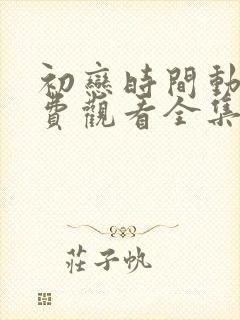 初戀時間動
費觀看全集
莊子帆